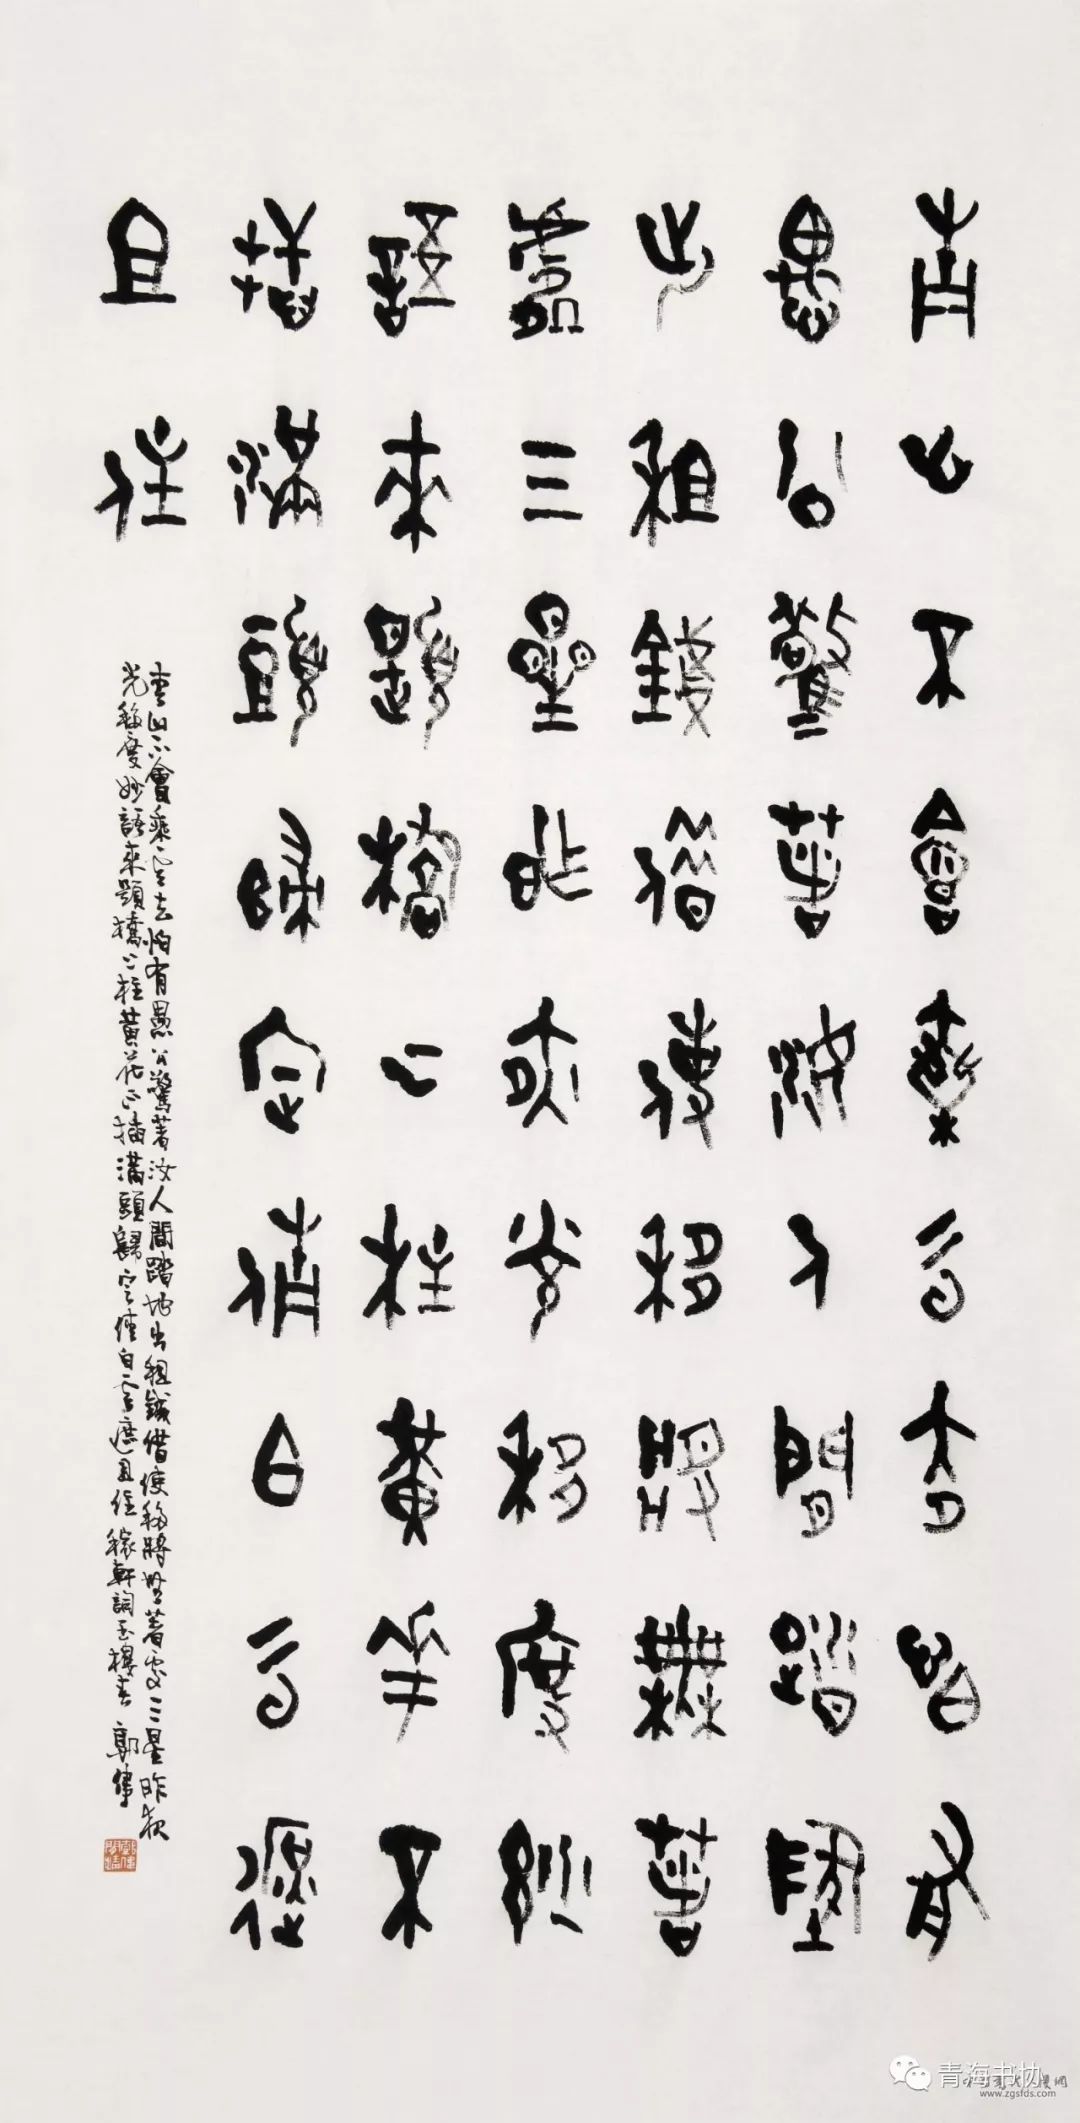 青山不會乘云去怕有
愚公驚著汝人間踏地
出租錢借使移將無著
處三星昨夜光移度妙
語來題橋上柱黃花不
插滿頭歸定倩白云遮
且住
青山不會乘雲去怕有愚公驚著汝人間踏地出租錢借使移將無著處三星昨夜
光移度妙語來題橋上柱黃花不插滿頭歸定倩白雲遮且住稼軒詞玉樓春 郭偉
青海书协
www.zgsfds.com